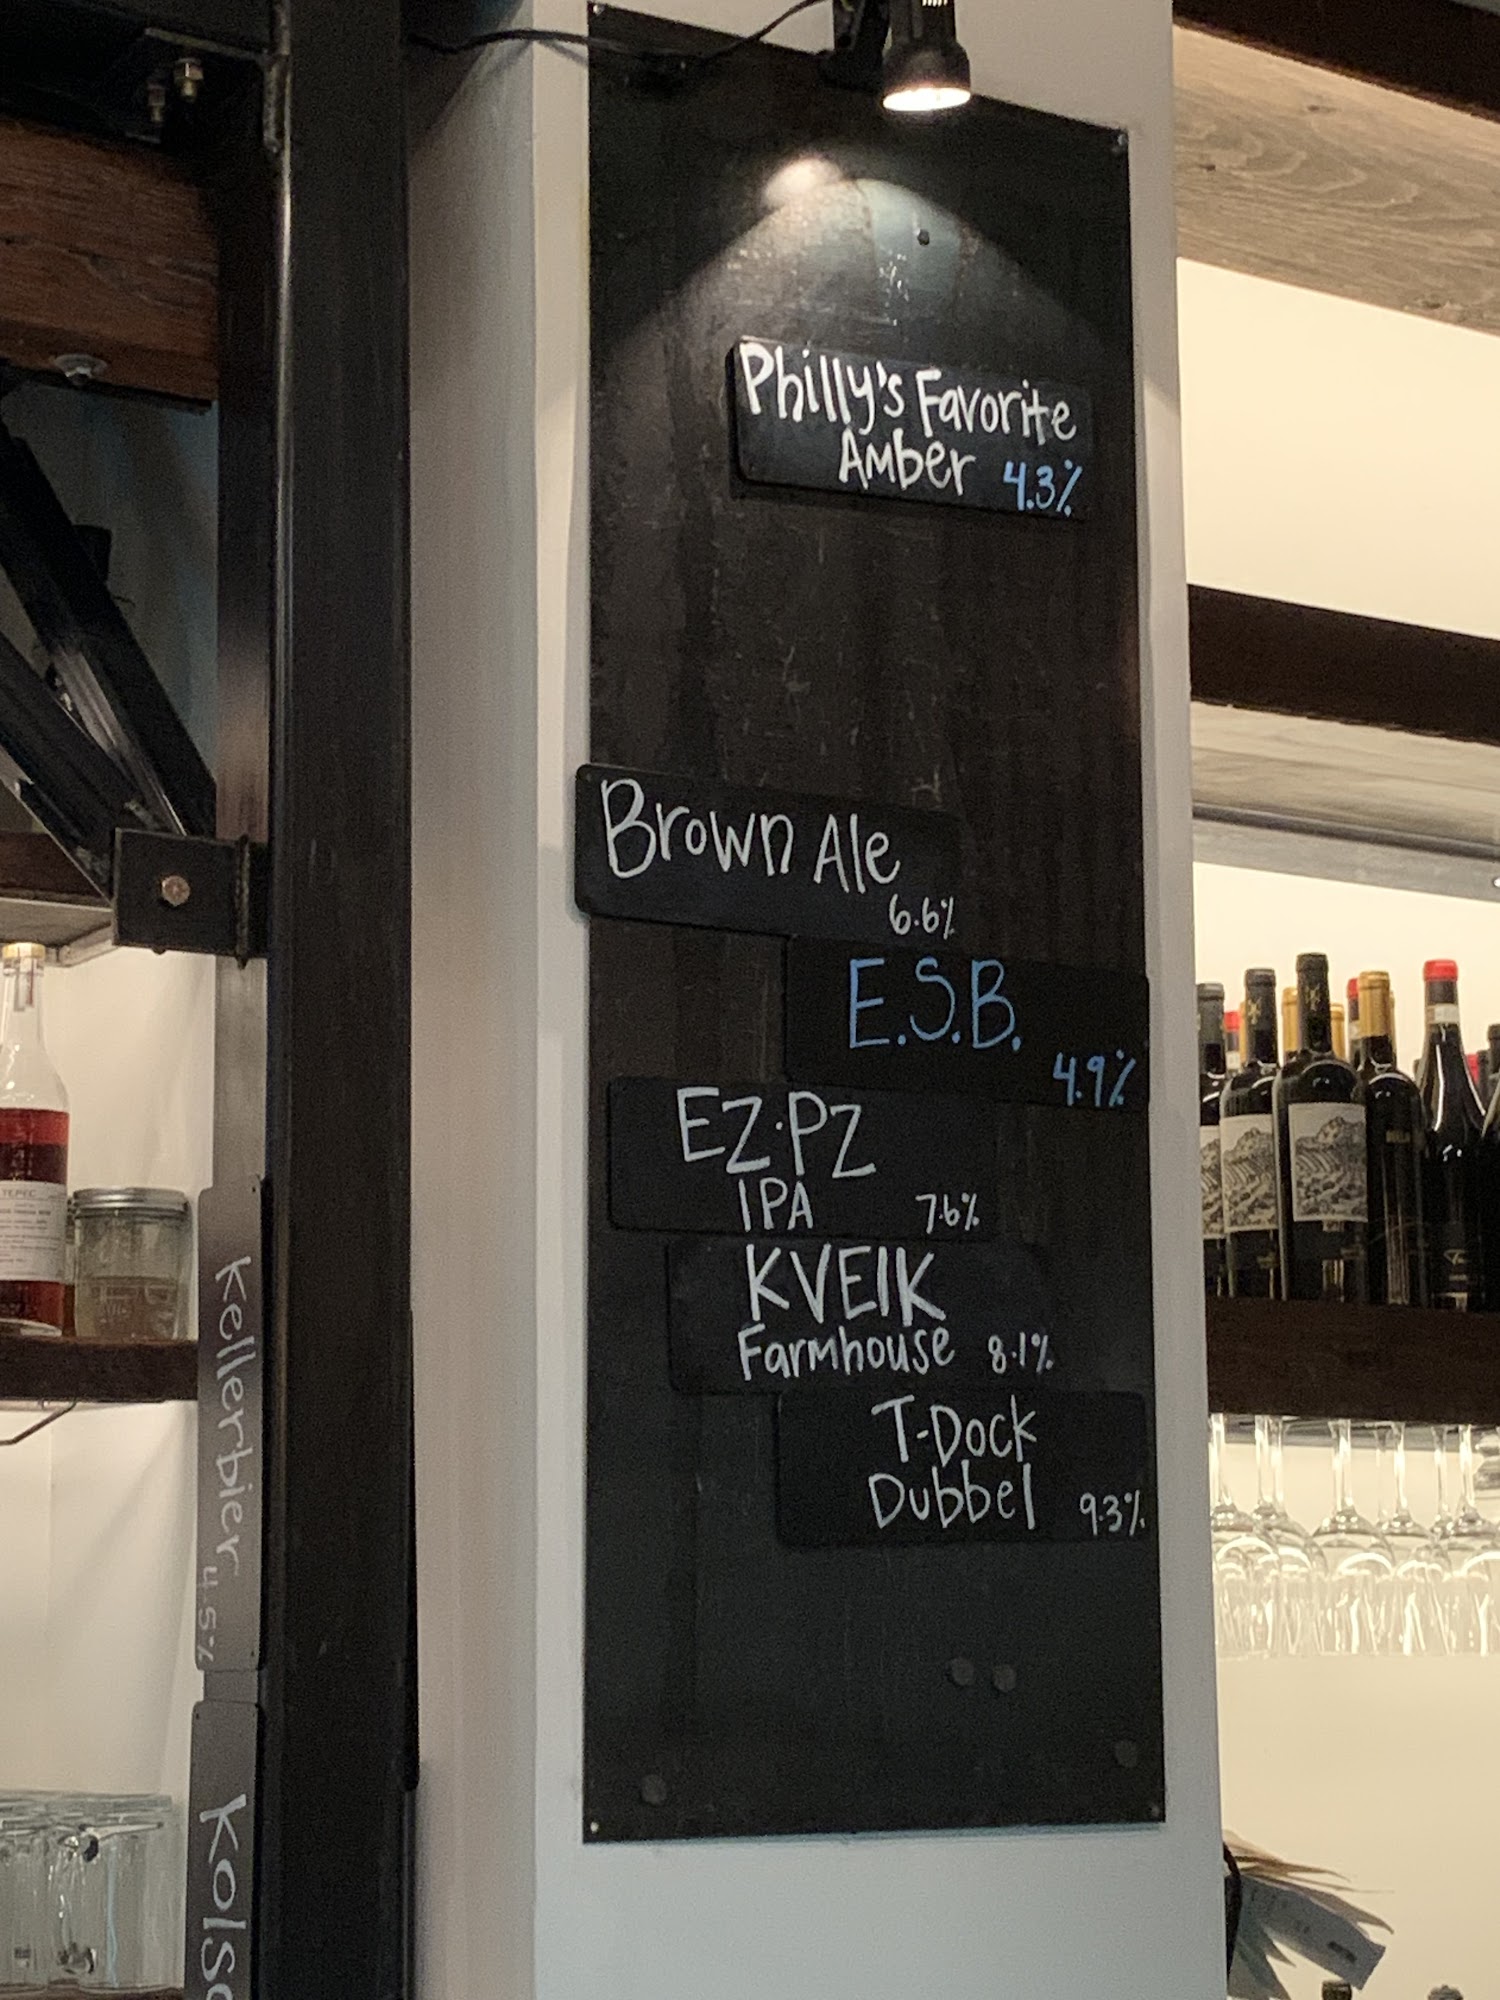 Philly's Favorite
Amber 4.3%
Brown Ale
6.6%
E.S.B.
4.9%
EZ·PZ
IPA 7.6%
KVEIK
Farmhouse 8.1%
T-Dock
Dubbel 9.3%
Kellerbier 4.5%
TEPEC